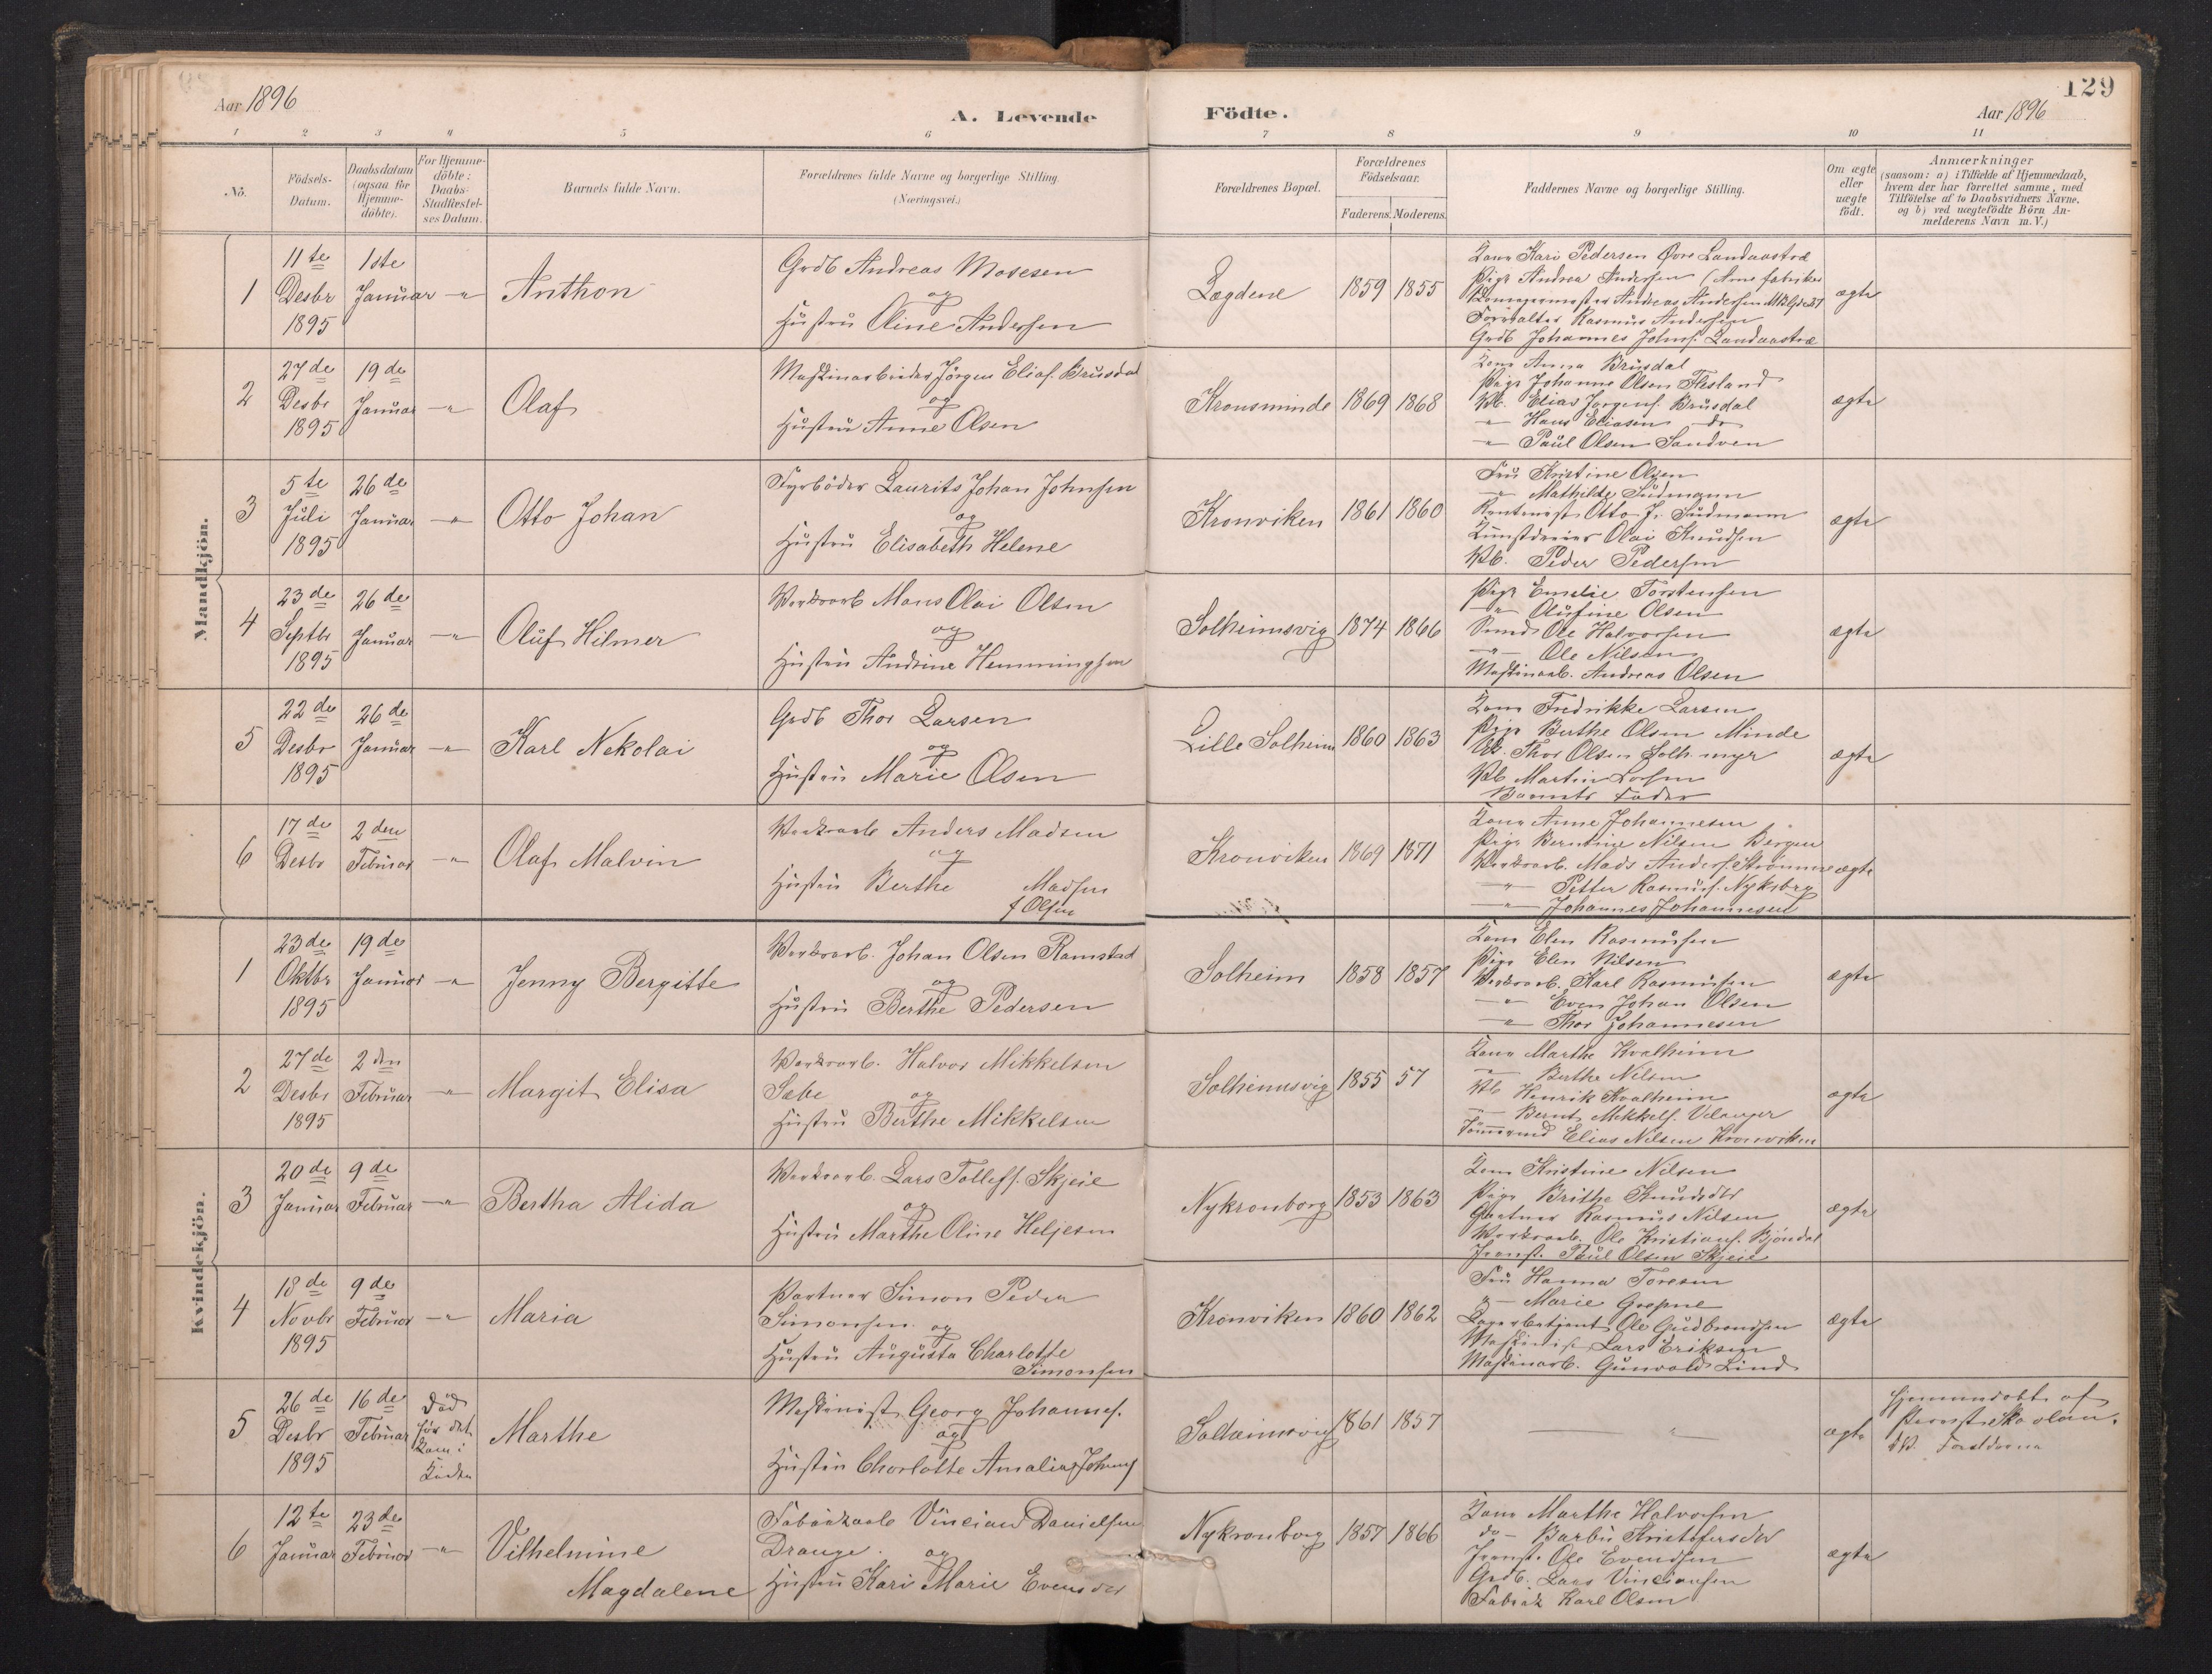 Aar 1896
A. Levende
Födte.
Aar 1896
129
1 2 3 4 5 6 7 8 9 10 11
No.
Födsels-
Datum.
Daabsdatum
(ogsaa for
Hjemme-
döbte).
For Hjemme-
döbte:
Daabs-
Stadfæstel-
ses Datum.
Barnets fulde Navn.
Forældrenes fulde Navne og borgerlige Stilling.
(Næringsvei.)
Forældrenes Bopæl.
Forældrenes
Födselsaar.
Faderens. Moderens.
Faddernes Navne og borgerlige Stilling.
Om ægte
eller
uægte
födt.
Anmærkninger
(saasom: a) i Tilfælde af Hjemmedaab,
hvem der har forrettet samme, med
Tilföielse af to Daabsvidners Navne,
og b) ved uægtefödte Börn An-
melderens Navn m. V.)
Mandkjön.
1
11te
Desbr
1895
1ste
Januar
Anthon
Grdb Andreas Mosesen
og
Hustru Oline Andersen
Lægdene
1859 1855
Kone Kari Pedersen Øvre Landaastræ
Pige Andrea Andersen (Arne fabriker
Andreas Andersen
Forvalter Rasmus Andersen
Grdb Johannes Johns. Landaastræ
ægte
2
27de
Desbr
1895
19de
Januar
Olaf
Maskinarbeider Jörgen Elias. Brusdal
og
Hustru Anne Olsen
Kronsminde
1869 1868
Kone Anna Brusdal
Pige Johanne Olsen Flesland
Ub. Elias Jørgens. Brusdal
" Hans Eliasen do
" Paul Olsen Sandven
ægte
3
5te
Juli
1895
26de
Januar
Otto Johan
Fyrböder Laurits Johan Johnsen
og
Hustru Elisabeth Helene
Kronviken
1861 1860
Fru Kristine Olsen
" Mathilde Sudmann
Otto J. Sudmann
Kunstdreier Olai Knudsen
Ub. Peder Pedersen
ægte
4
23de
Septbr
1895
26de
Januar
Oluf Hilmer
Værksarb Mons Olai Olsen
og
Hustru Andrine Hemmingsen
Solheimsvig
1874 1866
Pige Emelie Torstensen
" Olufine Olsen
Ole Halvorsen
" Ole Nilsen
Maskinarb. Andreas Olsen
ægte
5
22de
Desbr
1895
26de
Januar
Karl Nekolai
Grdb Thor Larsen
og
Hustru Marie Olsen
Lille Solheim
1860 1863
Kone Fredrikke Larsen
Pige Berthe Olsen Minde
Ub. Thor Olsen Solh. myr
Ub Martin Larsen
Barnets Fader
ægte
6
17de
Desbr
2den
Februar
Olaf Malvin
Værksarb Anders Madsen
og
Hustru Berthe Madsen
f Olsen
Kronviken
1869 1871
Kone Anne Johannesen
Pige Berntine Nilsen Bergen
Værksarb. Mads Anders. Strømme
" Petter Rasmus. Nykrbrg
" Johannes Johannesen
ægte
Kvindekjön.
1
23de
Oktbr
1895
19de
Januar
Jenny Bergitte
Værksarb. Johan Olsen Ramstad
og
Hustru Berthe Pedersen
Solheim
1858 1857
Kone Elen Rasmusen
Pige Elen Nilsen
Værksarb. Karl Rasmusen
" Even Johan Olsen
" Thor Johannesen
ægte
2
27de
Desbr
1895
2den
Februar
Margit Elisa
Værksarb. Halvor Mikkelsen
Sæbe og
Hustru Berthe Mikkelsen
Solheimsvig
1855 57
Kone Marthe Kvalheim
" Berthe Nilsen
Ub Henrik Kvalheim
" Bernt Mikkels.
Tømmermd Elias Nilsen Kronviken
ægte
3
20de
Januar
9de
Februar
Bertha Alida
Værksarb. Lars Tollefs. Skjeie
og
Hustru Marthe Oline Heljesen
Nykronborg
1853 1863
Kone Kristine Nilsen
Pige Brithe Knudsdtr
Gartner Rasmus Nilsen
Værksarb. Ole Kristians. Bjöndal
Jernst. Paul Olsen Skjeie
ægte
4
18de
Novbr
1895
9de
Februar
Maria
Portner Simon Peder
Simonsen og
Hustru Augusta Charlotte
Simonsen
Kronviken
1860 1862
Fru Hanna Toresen
" Marie
Lagerbetjent Ole Gudbrandsen
Maskinist Lars Eriksen
Maskinarb. Gunvald Lind
ægte
5
26de
Desbr
1895
16de
Februar
Död
för det
kom i
Kirken
Marthe
Maskinist Georg Johannes.
og
Hustru Charlotte Amalia Johans
Solheimsvig
1861 1857
"
ægte
Hjemmedöbt af
D.V. Forældrene
6
12te
Januar
23de
Februar
Vilhelmine
Magdalene
Fabrikarb Vincian Danielsen
Drange. og
Hustru Kari Marie Evensdtr
Nykronborg
1857 1866
Kone Marthe Halvorsen
do - Barbu Kristofersdtr
Jernst. Ole Evensen
Grdb. Lars Vinciansen
Fabrik Karl Olsen
ægte